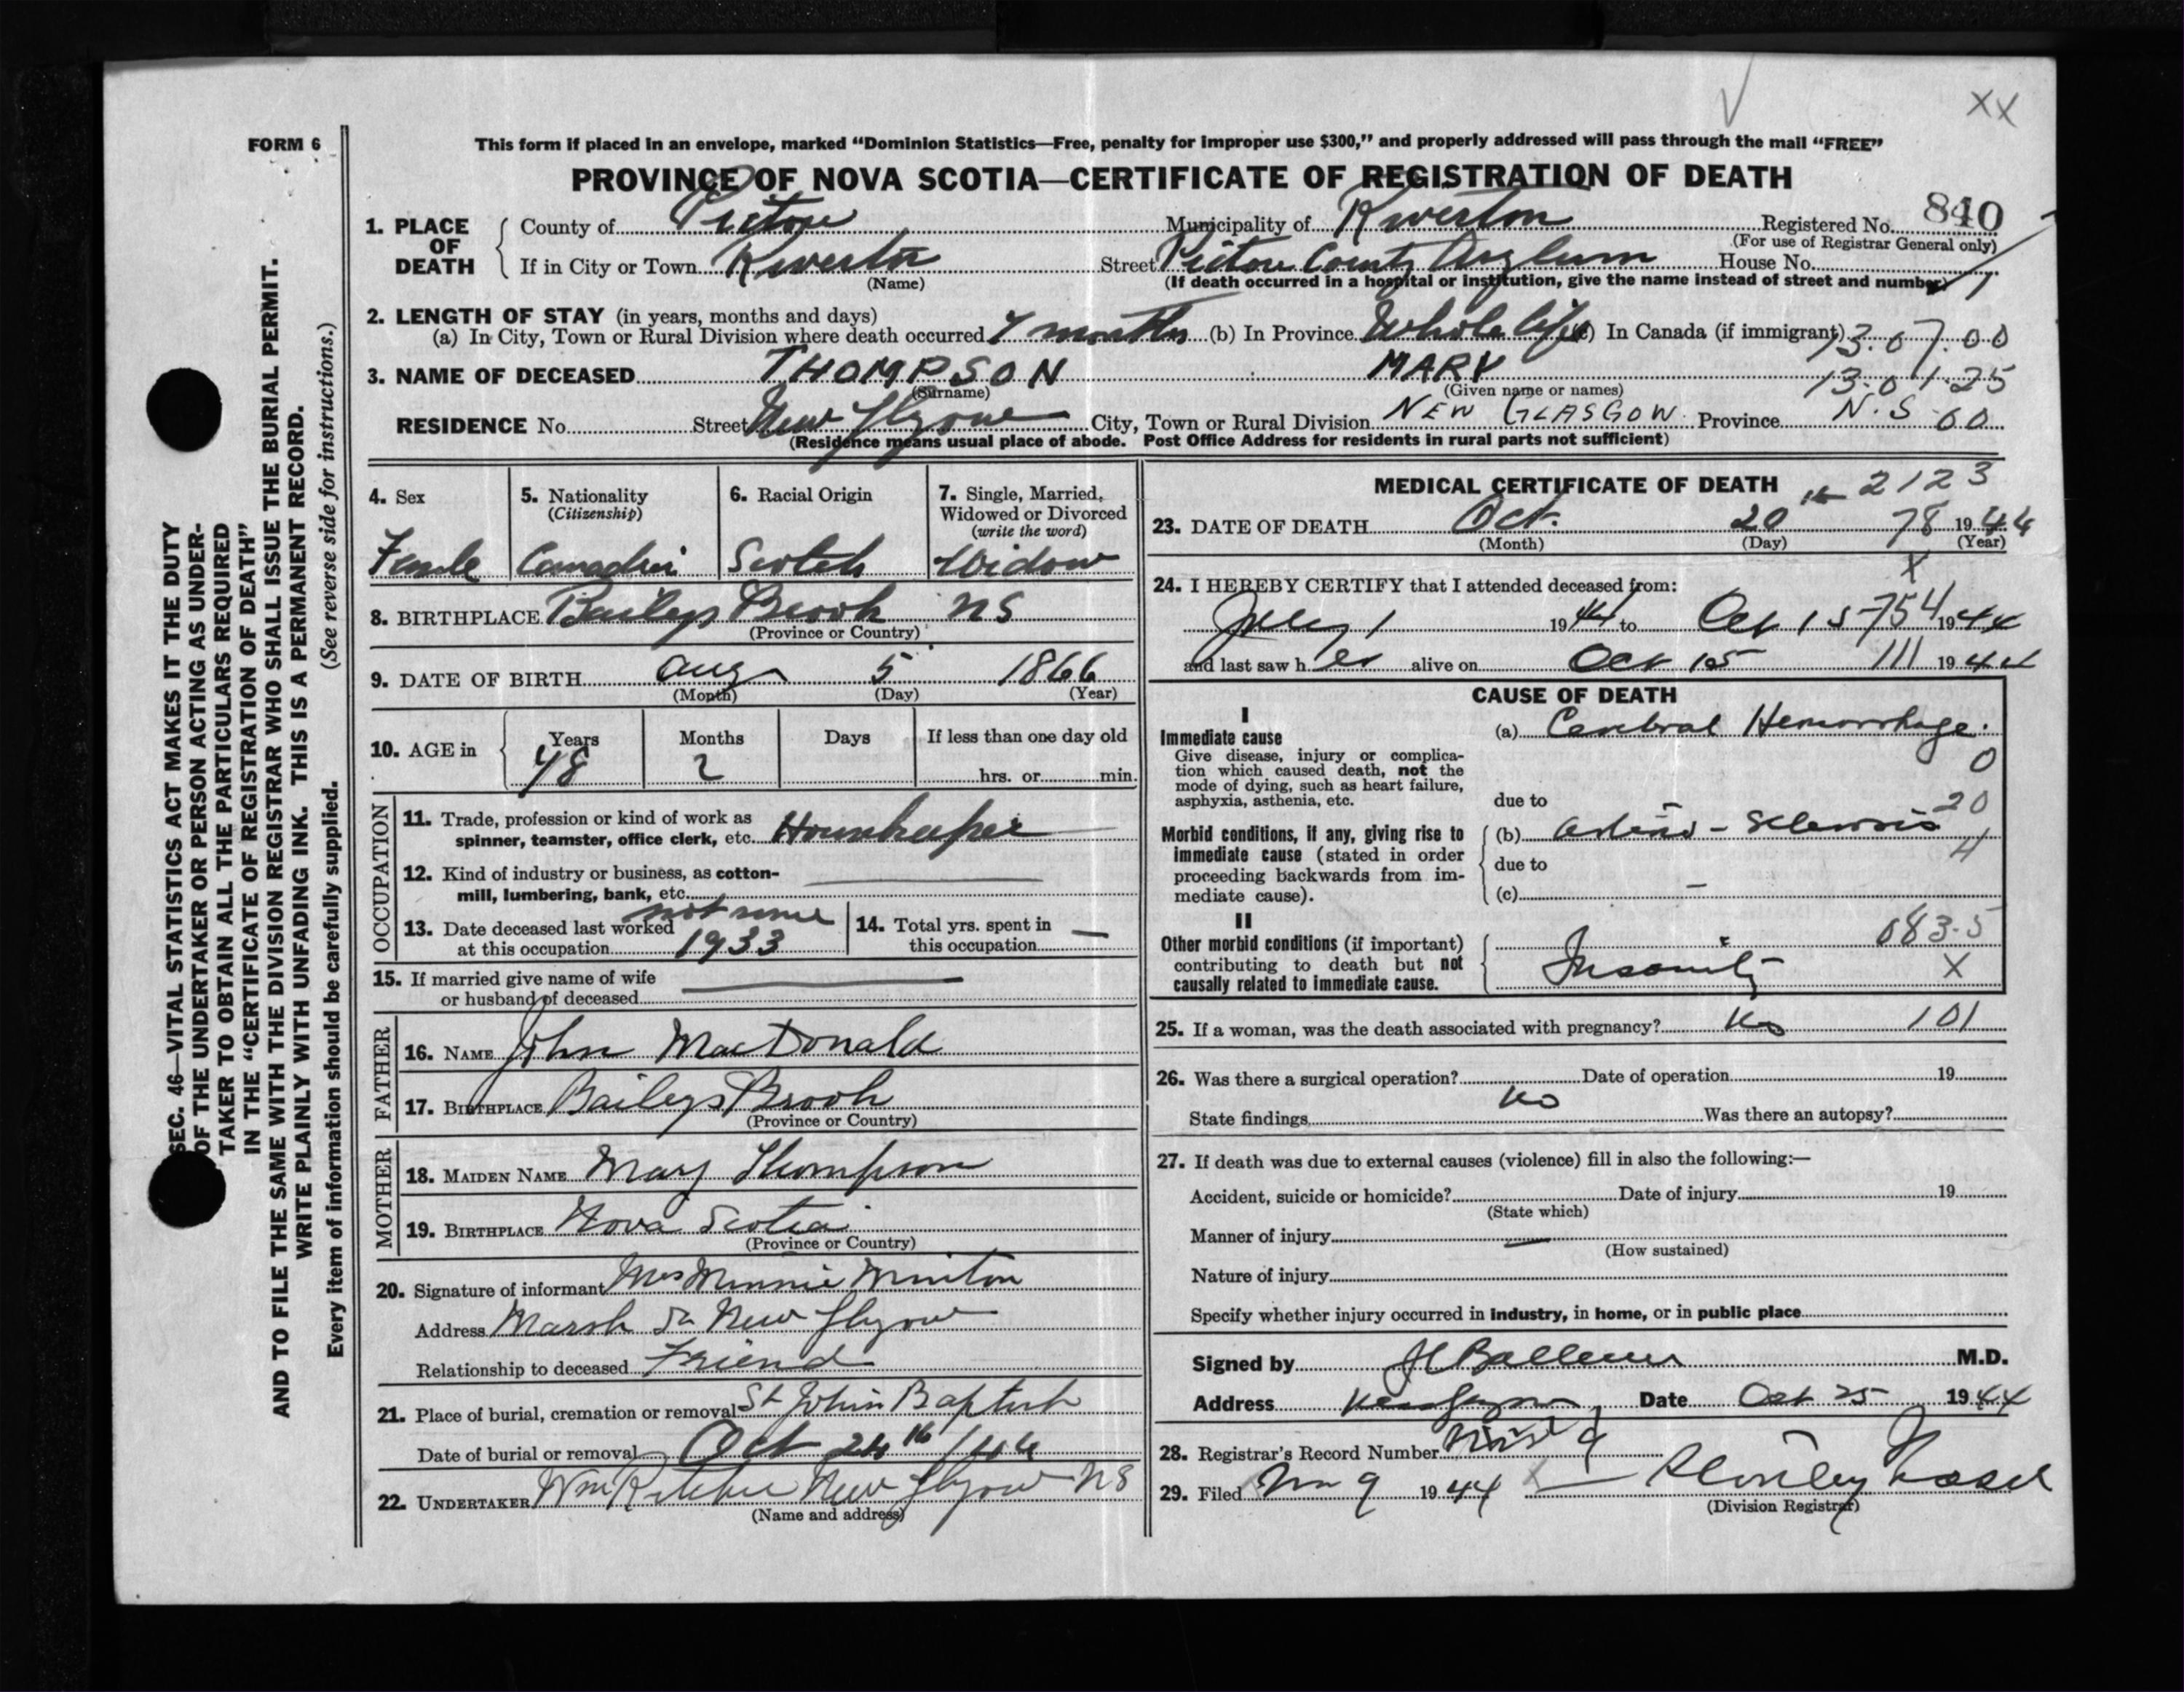 FORM 6
This form if placed in an envelope, marked “Dominion Statistics—Free, penalty for improper use $300,” and properly addressed will pass through the mail “FREE”
PROVINCE OF NOVA SCOTIA—CERTIFICATE OF REGISTRATION OF DEATH
XX
1. PLACE OF DEATH
County of Pictou Municipality of Riverton Registered No. 840
(For use of Registrar General only)
If in City or Town Riverton Street Pictou County Asylum House No.
(Name) (If death occurred in a hospital or institution, give the name instead of street and number)
2. LENGTH OF STAY (in years, months and days)
(a) In City, Town or Rural Division where death occurred 7 months (b) In Province Whole life (c) In Canada (if immigrant) 13.07.00
3. NAME OF DECEASED THOMPSON MARY 13.01.25
(Surname) (Given name or names)
RESIDENCE No. Street New Glasgow City, Town or Rural Division NEW GLASGOW Province N.S. 00
(Residence means usual place of abode. Post Office Address for residents in rural parts not sufficient)
4. Sex
Female
5. Nationality
(Citizenship)
Canadian
6. Racial Origin
Scotch
7. Single, Married, Widowed or Divorced
(write the word)
Widow
8. BIRTHPLACE Baileys Brook NS
(Province or Country)
9. DATE OF BIRTH Aug 5 1866
(Month) (Day) (Year)
10. AGE in
Years Months Days If less than one day old
78 2 hrs. or min.
OCCUPATION
11. Trade, profession or kind of work as
spinner, teamster, office clerk, etc. Housekeeper
12. Kind of industry or business, as cotton-
mill, lumbering, bank, etc.
not since
13. Date deceased last worked
at this occupation 1933
14. Total yrs. spent in
this occupation —
15. If married give name of wife
or husband of deceased
FATHER
16. NAME John MacDonald
17. BIRTHPLACE Baileys Brook
(Province or Country)
MOTHER
18. MAIDEN NAME Mary Thompson
19. BIRTHPLACE Nova Scotia
(Province or Country)
20. Signature of informant Mrs Minnie Minton
Address Marsh St New Glasgow
Relationship to deceased Friend
21. Place of burial, cremation or removal St John Baptist
Date of burial or removal Oct 24th /44
22. UNDERTAKER Wm Ritchie New Glasgow NS
(Name and address)
MEDICAL CERTIFICATE OF DEATH 2123
23. DATE OF DEATH Oct. 20th 78 1944
(Month) (Day) (Year)
X
24. I HEREBY CERTIFY that I attended deceased from:
July 1 1944 to Oct 15 754 1944
and last saw her alive on Oct 15 111 1944
CAUSE OF DEATH
I
Immediate cause
Give disease, injury or complica-
tion which caused death, not the
mode of dying, such as heart failure,
asphyxia, asthenia, etc.
(a) Cerebral Hemorrhage.
0
due to
20
Morbid conditions, if any, giving rise to
immediate cause (stated in order
proceeding backwards from im-
mediate cause).
(b) Arterio-Sclerosis
4
due to
(c) —
II
Other morbid conditions (if important)
contributing to death but not
causally related to immediate cause.
083.5
Insanity X
25. If a woman, was the death associated with pregnancy? No 101
26. Was there a surgical operation? Date of operation 19
No
State findings Was there an autopsy?
27. If death was due to external causes (violence) fill in also the following:—
Accident, suicide or homicide? Date of injury 19
(State which)
Manner of injury —
(How sustained)
Nature of injury
Specify whether injury occurred in industry, in home, or in public place
Signed by M.D.
Address New Glasgow Date Oct 25 1944
28. Registrar's Record Number 9
29. Filed Nov 9 1944 Stanley
(Division Registrar)
SEC. 46—VITAL STATISTICS ACT MAKES IT THE DUTY
OF THE UNDERTAKER OR PERSON ACTING AS UNDER-
TAKER TO OBTAIN ALL THE PARTICULARS REQUIRED
IN THE “CERTIFICATE OF REGISTRATION OF DEATH”
AND TO FILE THE SAME WITH THE DIVISION REGISTRAR WHO SHALL ISSUE THE BURIAL PERMIT.
WRITE PLAINLY WITH UNFADING INK. THIS IS A PERMANENT RECORD.
Every item of information should be carefully supplied. (See reverse side for instructions.)